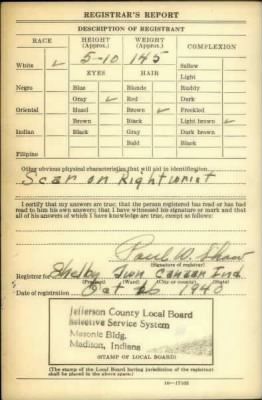 REGISTRAR'S REPORT
DESCRIPTION OF REGISTRANT
RACE HEIGHT (Approx.) WEIGHT (Approx.) COMPLEXION
White ✓ 5-10 145 Sallow
EYES HAIR Light
Negro Blue Blonde Ruddy
Gray ✓ Red Dark
Oriental Hazel Brown ✓ Freckled
Brown Black Light brown ✓
Indian Black Gray Dark brown
Bald Black
Filipino
Other obvious physical characteristics that will aid in identification
Scar on Right wrist
I certify that my answers are true; that the person registered has read or has had read to him his own answers; that I have witnessed his signature or mark and that all of his answers of which I have knowledge are true, except as follows:
Paul W. Shaw
(Signature of registrar)
Registrar for Shelby Twn Canaan Ind
(Precinct) (Ward) (City or county) (State)
Date of registration Oct 16 1940
Jefferson County Local Board
Selective Service System
Masonic Bldg.
Madison, Indiana
(STAMP OF LOCAL BOARD)
(The stamp of the Local Board having jurisdiction of the registrant
shall be placed in the above space.)